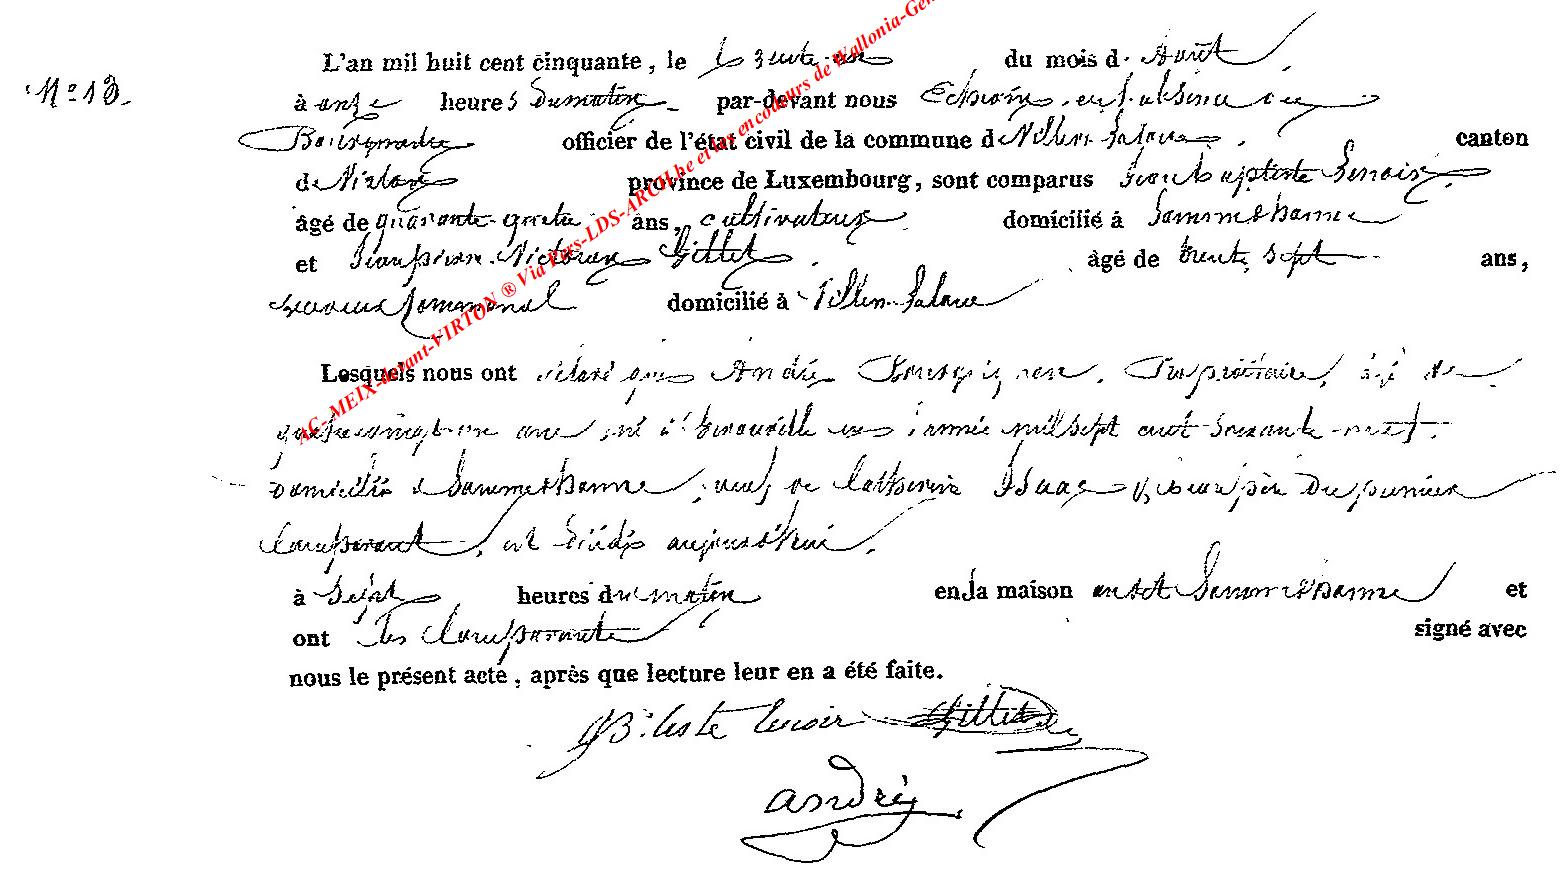 N.o 13.
L'an mil huit cent cinquante, le trente un du mois d. Août
à onze heures du matin par-devant nous Echevin, en l'absence du
Bourgmestre officier de l'état civil de la commune de Villers-Laloue, canton
de Virton province de Luxembourg, sont comparus Jean baptiste Lenoir,
âgé de quarante-quatre ans, cultivateur domicilié à Sommethonne
et Jean pierre Gillet, âgé de trente sept ans,
domicilié à Villers-Laloue
Lesquels nous ont déclaré que André Bourguignon, Propriétaire, âgé de
quatre vingt un ans, né à Gérouville en l'année mil sept cent soixante neuf,
domicilié à Sommethonne, veuf de Catherine Isaac beaupère du premier
Comparant, est décédé aujourd'hui,
à Sept heures du matin en la maison audit Sommethonne et
ont les Comparants signé avec
nous le présent acte, après que lecture leur en a été faite.
JB.tiste lenoir Gillet
andré
AC-MEIX-devant-VIRTON ® Via Pers-LDS-ARCH be et les encodeurs de Wallonia-Gen